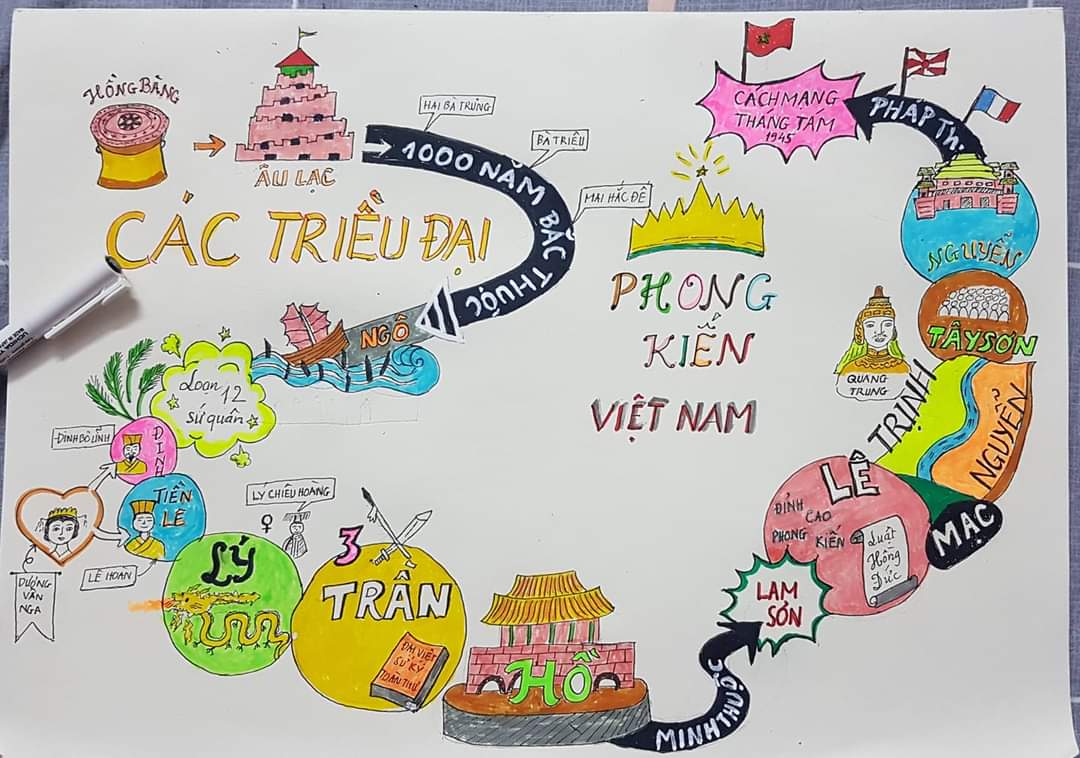 HỒNG BÀNG
ÂU LẠC
HAI BÀ TRƯNG
BÀ TRIỆU
MAI HẮC ĐẾ
1000 NĂM BẮC THUỘC
CÁC TRIỀU ĐẠI
PHONG
KIẾN
VIỆT NAM
NGÔ
Loạn 12
sứ quân
ĐINH BỘ LĨNH
ĐINH
TIỀN
LÊ
DƯƠNG
VÂN
NGA
LÊ HOÀN
LÝ
LÝ CHIÊU HOÀNG
3
TRẦN
ĐẠI VIỆT
SỬ KÝ
TOÀN THƯ
HỒ
MINH THUỘC
LAM
SƠN
LÊ
ĐỈNH
CAO
PHONG KIẾN
Luật
Hồng
Đức
MẠC
TRỊNH
NGUYỄN
TÂY SƠN
QUANG
TRUNG
NGUYỄN
PHÁP TH.
CÁCH MẠNG
THÁNG TÁM
1945